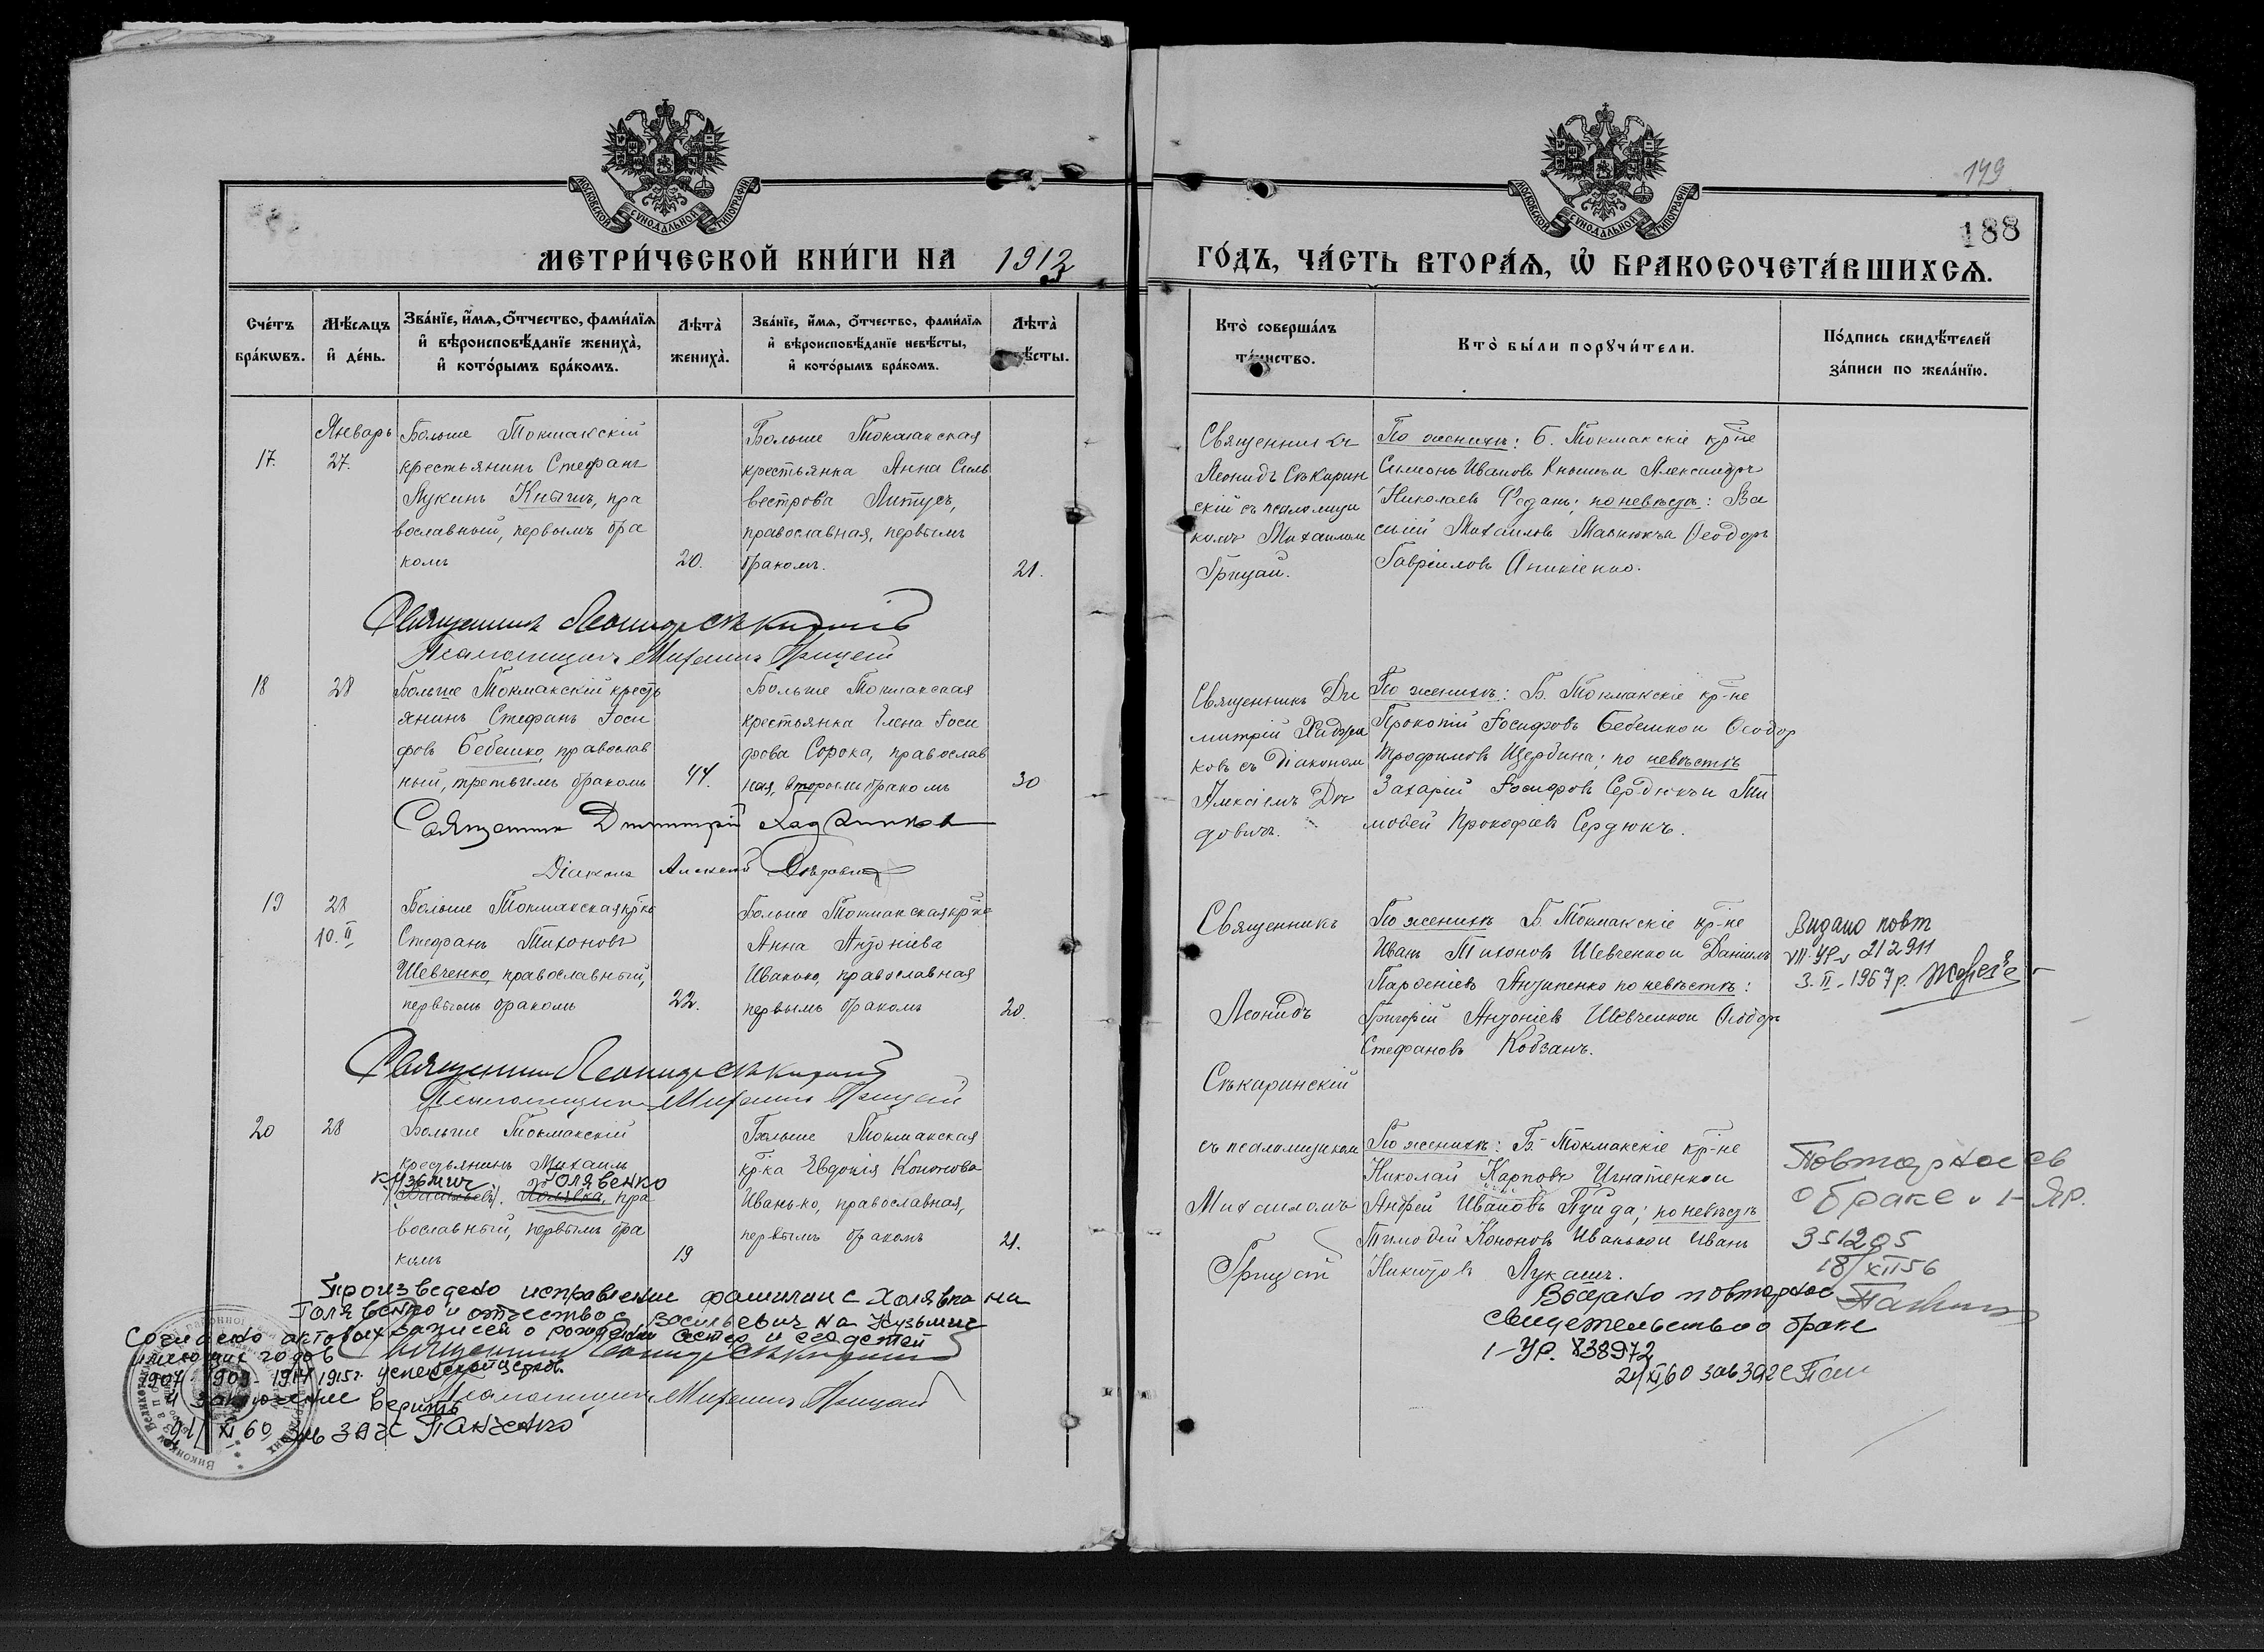 149
188
МОСКОВСКОЙ СУНОДАЛЬНОЙ ТИПОГРАФІИ
МОСКОВСКОЙ СУНОДАЛЬНОЙ ТИПОГРАФІИ
МЕТРИ́ЧЕСКОЙ КНИ́ГИ НА 1912
ГО́ДЪ, ЧА́СТЬ ВТОРА́Ѧ, Ѡ БРАКОСОЧЕТА́ВШИХСѦ.
Счéтъ бра́кѡвъ.
Мѣ́сѧцъ и҆ де́нь.
Зва́нїе, и҆́мѧ, ѻ҆́тчество, фами́лїѧ
и҆ вѣроисповѣ́данїе жениха̀,
и҆ кото́рымъ бра́комъ.
Лѣта̀ жениха̀.
Зва́нїе, и҆́мѧ, ѻ҆́тчество, фами́лїѧ
и҆ вѣроисповѣ́данїе невѣ́сты,
и҆ кото́рымъ бра́комъ.
Лѣта̀
Кто̀ соверша́лъ
та́инство.
Кто̀ бы́ли порꙋчи́тели.
По́дпись свидѣ́телей
за́писи по жела́нїю.
17.
Январь
27.
Больше Токмакскій
крестьянинъ Стефанъ
Лукинъ Кнышъ, пра
вославный, первымъ бра
комъ
20.
Больше Токмакская
крестьянка Анна Силь
вестрова Литусъ,
православная, первымъ
бракомъ.
21.
Священникъ
Леонидъ Сѣкарин
скій съ псаломщи
комъ Михаиломъ
Грицай.
По женихѣ: Б. Токмакскіе кр-не
Симонъ Ивановъ Кнышъ и Александръ
Николаевъ Федань; по невѣстѣ: Ва
силій Михаиловъ Масюкъ и Ѳеодоръ
Гавріиловъ Аникіенко.
Священникъ Леонидъ Сѣкаринскій
Псаломщикъ Михаилъ Грицай
18
28
Больше Токмакскій кресть
янинъ Стефанъ Іоси
фовъ Бебешко, православ
ный, третьимъ бракомъ
44.
Больше Токмакская
крестьянка Елена Іоси
фова Сорока, православ
ная, вторымъ бракомъ
30
Священникъ Ди
митрій Хаджи
ковъ съ діакономъ
Алексіемъ Дѣ
довичъ.
По женихѣ: Б. Токмакскіе кр-не
Прокопій Іосифовъ Бебешко и Ѳеодор
Трофимовъ Щербина; по невѣстѣ
Захарій Іосифовъ Сердюкъ и Ти
моѳей Прокофіевъ Сердюкъ.
Священникъ Димитрій
Діаконъ Алексій Дѣдовичъ
19
28
10.II
Больше Токмакская кр-нъ
Стефанъ Тихоновъ
Шевченко, православный,
первымъ бракомъ
22.
Больше Токмакская кр-ка
Анна Антоніева
Иванько, православная
первымъ бракомъ
20.
Священникъ
Леонидъ
Сѣкаринскій
По женихѣ Б. Токмакскіе кр-не
Иванъ Тихоновъ Шевченко и Даніилъ
Парѳеніевъ Антипенко по невѣстѣ:
Григорій Антоніевъ Шевченко и Ѳеодоръ
Стефановъ Кобзанъ.
Видано повт
212911
3.II.1967р.
Священникъ Леонидъ Сѣкаринскій
Псаломщикъ Михаилъ Грицай
20
28
Больше Токмакскій
крестьянинъ Михаилъ
Кузьмич Голявенко
(Васильевъ). Холявка, пра
вославный, первымъ бра
комъ
19
Больше Токмакская
кр-ка Евдокія Кононова
Иванько, православная,
первымъ бракомъ
21.
съ псаломщикомъ
Михаиломъ
Грицай
По женихѣ: Б-Токмакскіе кр-не
Николай Карповъ Игнатенко и
Андрей Ивановъ Пуйда; по невѣстѣ
Тимоѳей Кононовъ Иванько и Иванъ
Никитовъ Лукашъ.
Повторное св
о браке 1-ЯР.
351205
18/XII56
Выдано повторное
свидетельство о браке
1-УР. 838972
24/XI60 зав загс Пан
Произведено исправление фамилии с Холявка на
Голявенко и отчество с Васильевич на Кузьмич
Согласно актовых записей о рождении сестер и его детей
годов
1907 1909-1911 1915г. успенской церков.
и заключение верить
Священникъ Леонидъ Сѣкаринскій
Псаломщикъ Михаилъ Грицай
24/XI 60 зав ЗАГС Панченко